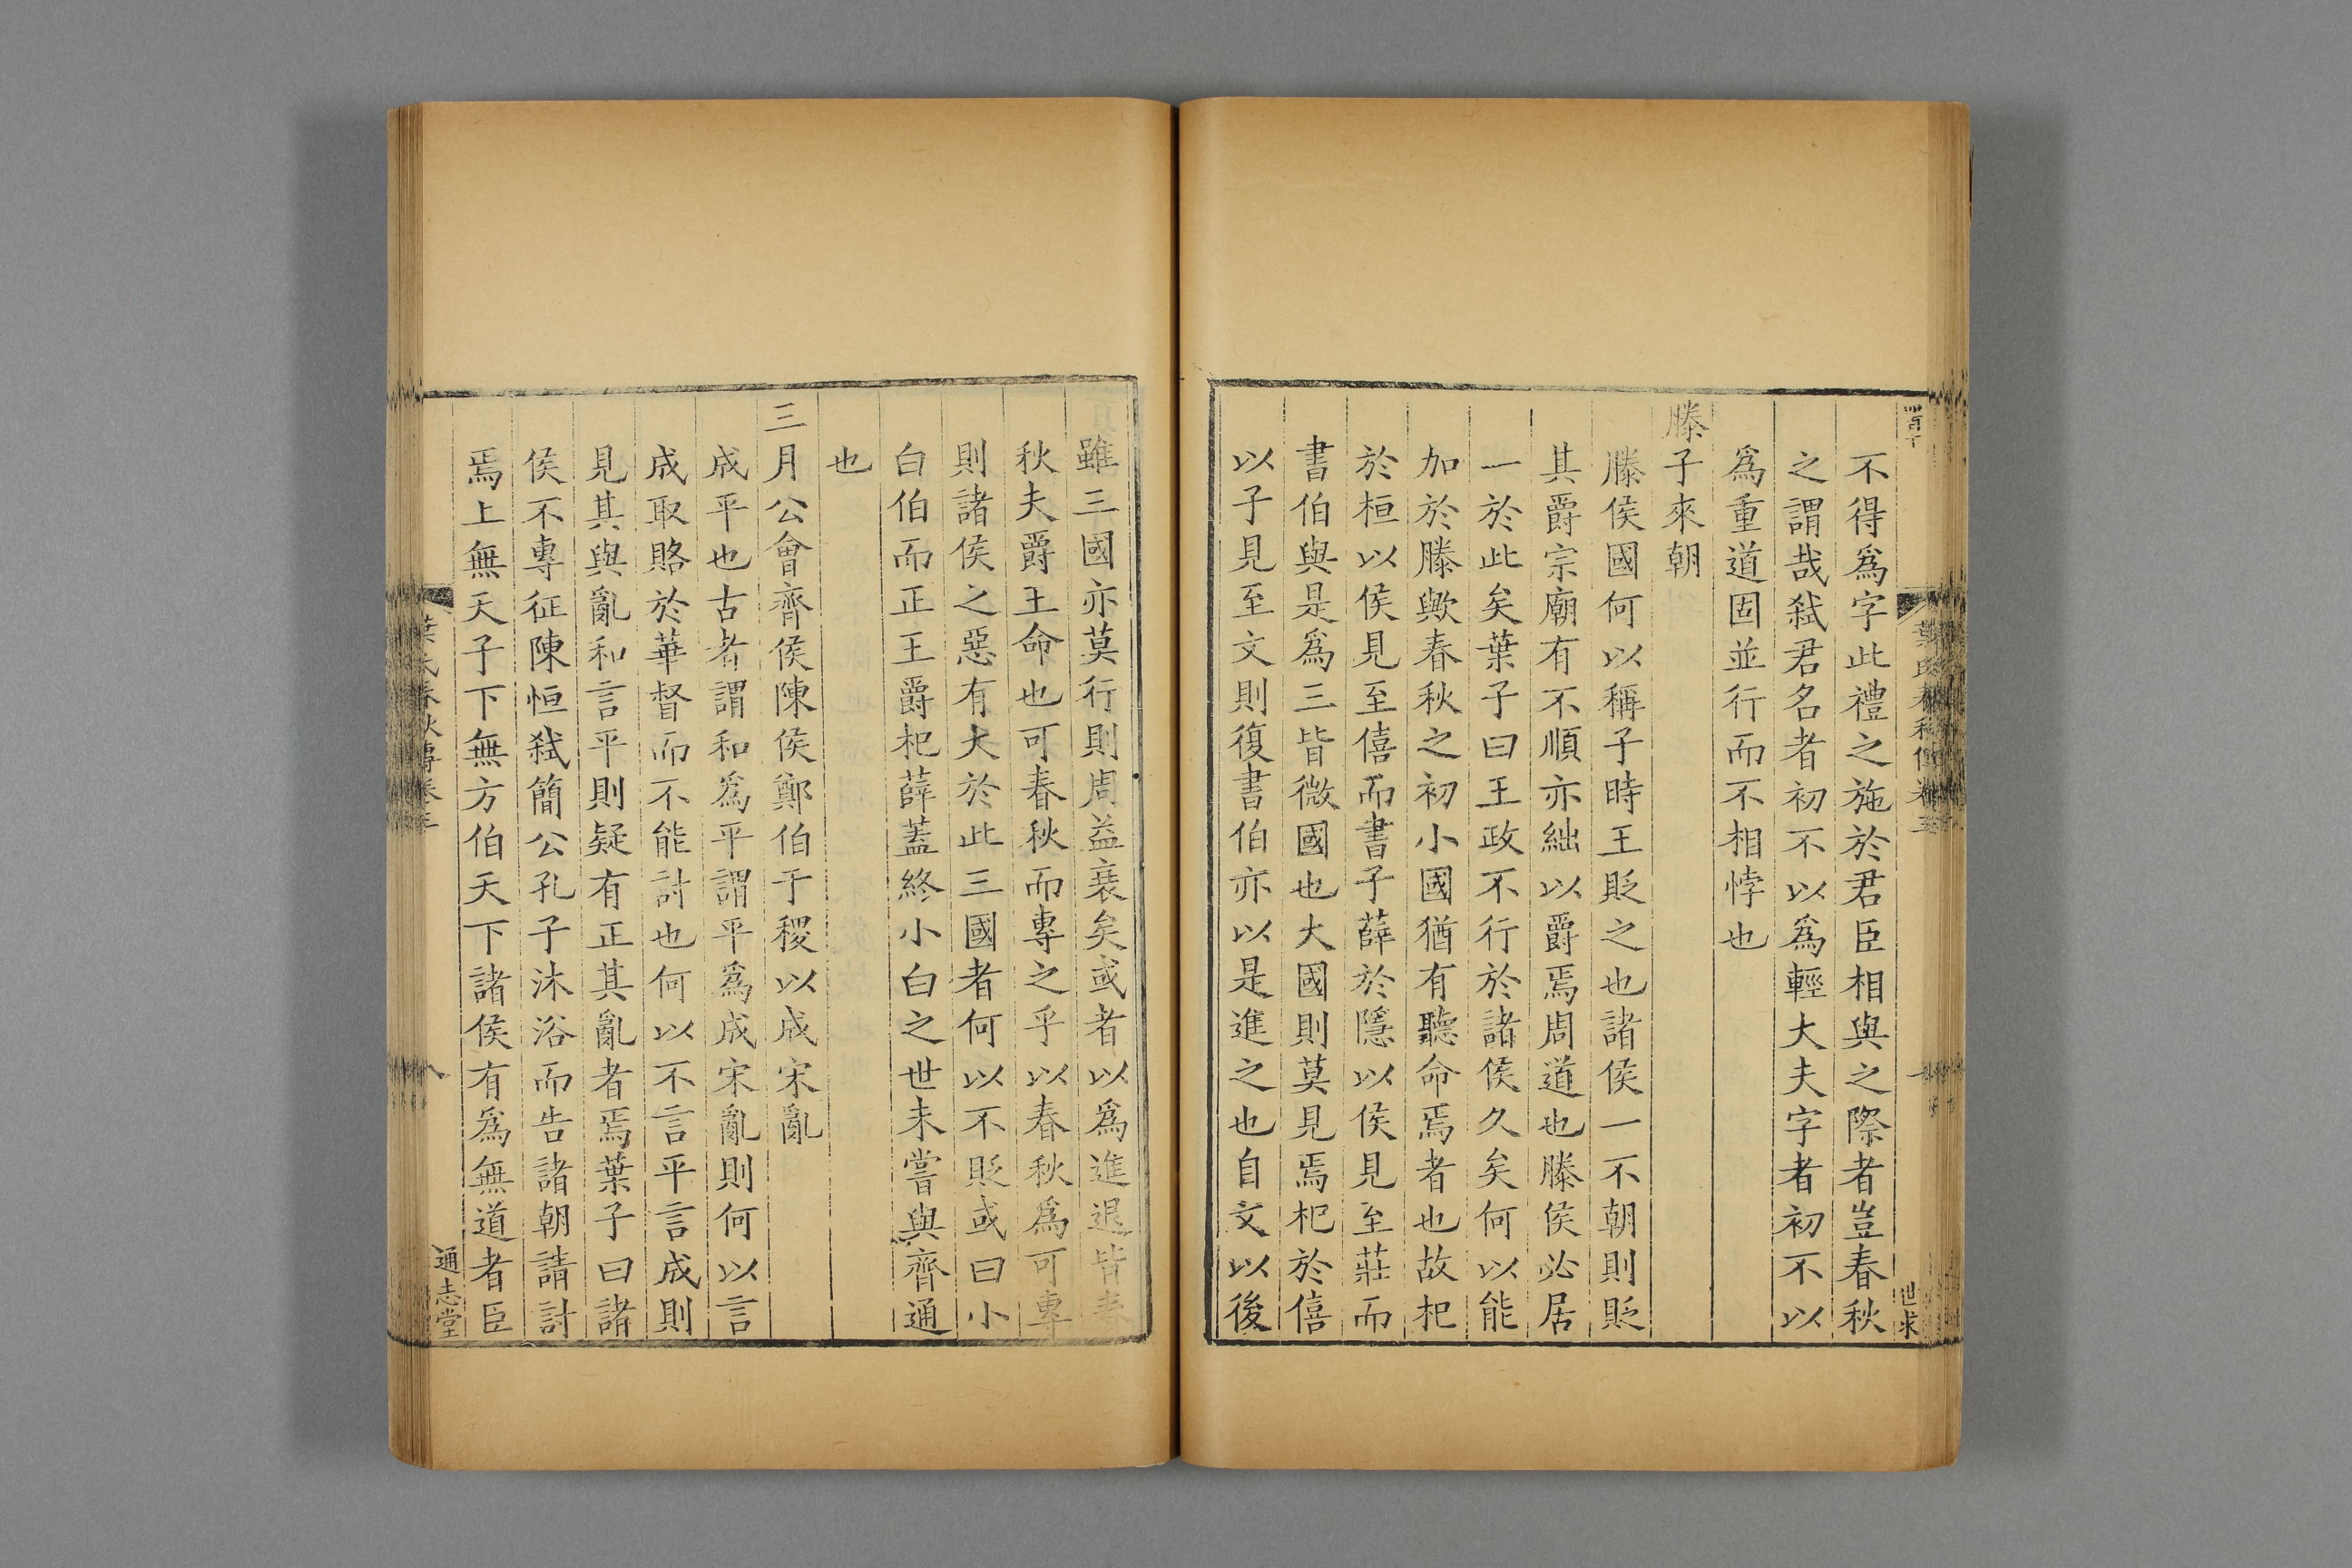 不得爲字此禮之施於君臣相與之際者豈春秋
之謂哉弑君名者初不以爲輕大夫字者初不以
爲重道固並行而不相悖也
滕子來朝
滕侯國何以稱子時王貶之也諸侯一不朝則貶
其爵宗廟有不順亦絀以爵焉周道也滕侯必居
一於此矣葉子曰王政不行於諸侯久矣何以能
加於滕歟春秋之初小國猶有聽命焉者也故杞
於桓以侯見至僖而書子薛於隱以侯見至莊而
書伯與是爲三皆微國也大國則莫見焉杞於僖
以子見至文則復書伯亦以是進之也自文以後
雖三國亦莫行則周益衰矣或者以爲進退皆春
秋夫爵王命也可春秋而專之乎以春秋爲可專
則諸侯之惡有大於此三國者何以不貶或曰小
白伯而正王爵杞薛蓋終小白之世未嘗與齊通
也
三月公會齊侯陳侯鄭伯于稷以成宋亂
成平也古者謂和爲平謂平爲成成宋亂則何以言
成取賂於華督而不能討也何以不言平言成則
見其與亂和言平則疑有正其亂者焉葉子曰諸
侯不專征陳恒弑簡公孔子沐浴而告諸朝請討
焉上無天子下無方伯天下諸侯有爲無道者臣
葉氏春秋傳卷三
八
通志堂